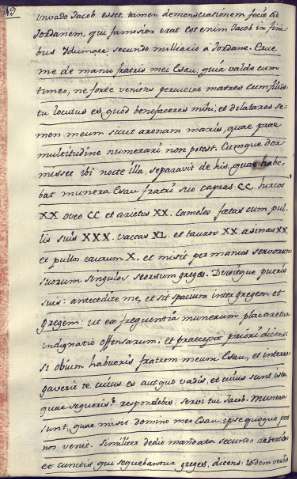 invado Jacob esset, tamen demonstrationem fecit ad
Jordanem, qui farmison erat est enim Jacob in fini
bus Idumeae secundo milliario a Jordane. Erue
me de manu fratris mei Esau, quia valde eum
timeo, ne forte veniens percutiat matrem cum filiis
tu locutus es, quod benefaceres mihi, et dilatares se
men meum sicut arenam maris, quae prae
multitudine numerari non potest. Cumque dor
misset ibi nocte illa, separavit de his, quae habe
bat munera Esau fratri suo capras CC, hircos
XX oves CC et arietes XX. Camelos foetas cum pul
lis suis XXX. vaccas XL et tauros XX asinas XX
et pullos earum X. et misit per manus servorum
suorum singulos seorsum greges. Dixitque pueris
suis: antecedite me, et sit spatium inter gregem et
gregem. ut ex frequentia munerum placaretur
indignatio offensarum. et praecepit priori dicens:
si obium habueris fratrem meum Esau, et interro
gaverit te cuius es aut quo vadis, et cuius sunt ista
quae sequeris: respondebis. servi tui Jacob. Munera
sunt, quae misit domino meo Esau, ipse quoque post
nos venit. Similiter dedit mandata secundo ac tertio
et cunctis, qui sequebantur greges, dicens: iisdem verbis